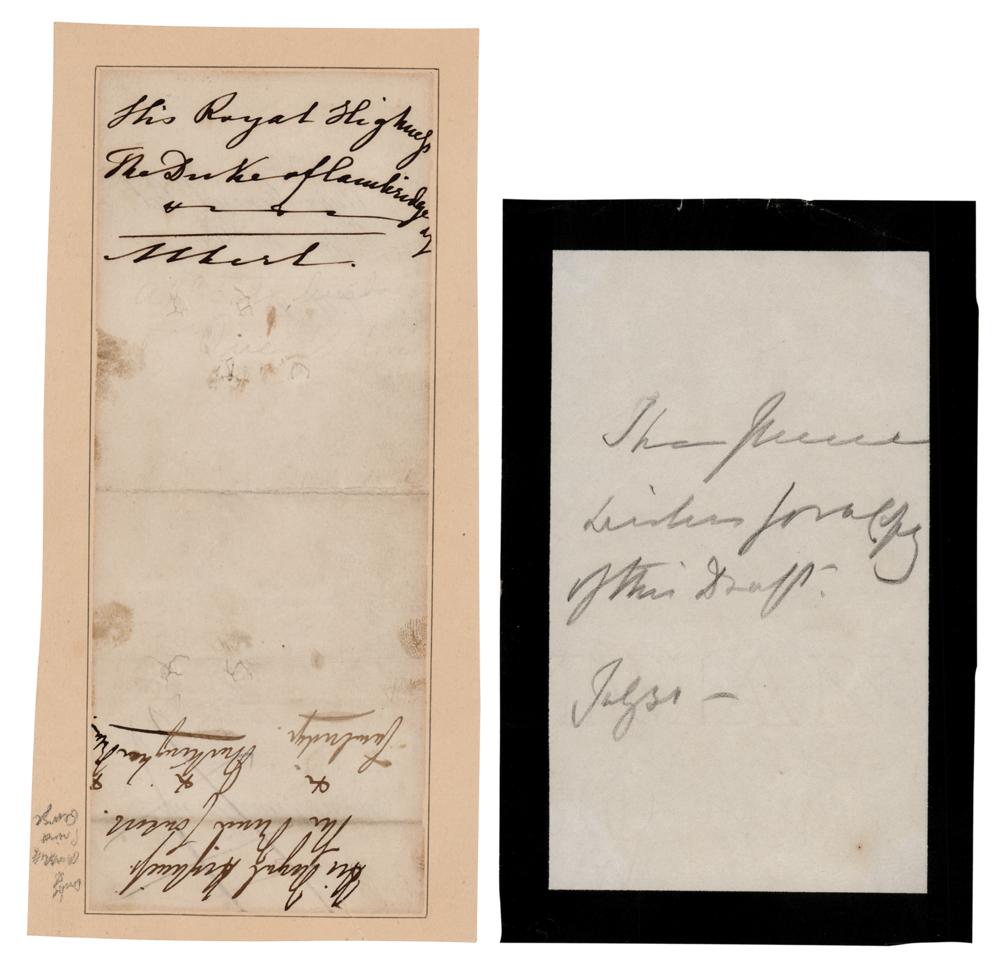 His Royal Highness
The Duke of Cambridge
Albert.
His Royal Highness
The Prince Consort.
&c &c &c
Buckingham
Cambridge.
Prince
George
The Queen
wishes for a Copy
of this Draft.
July 31 –